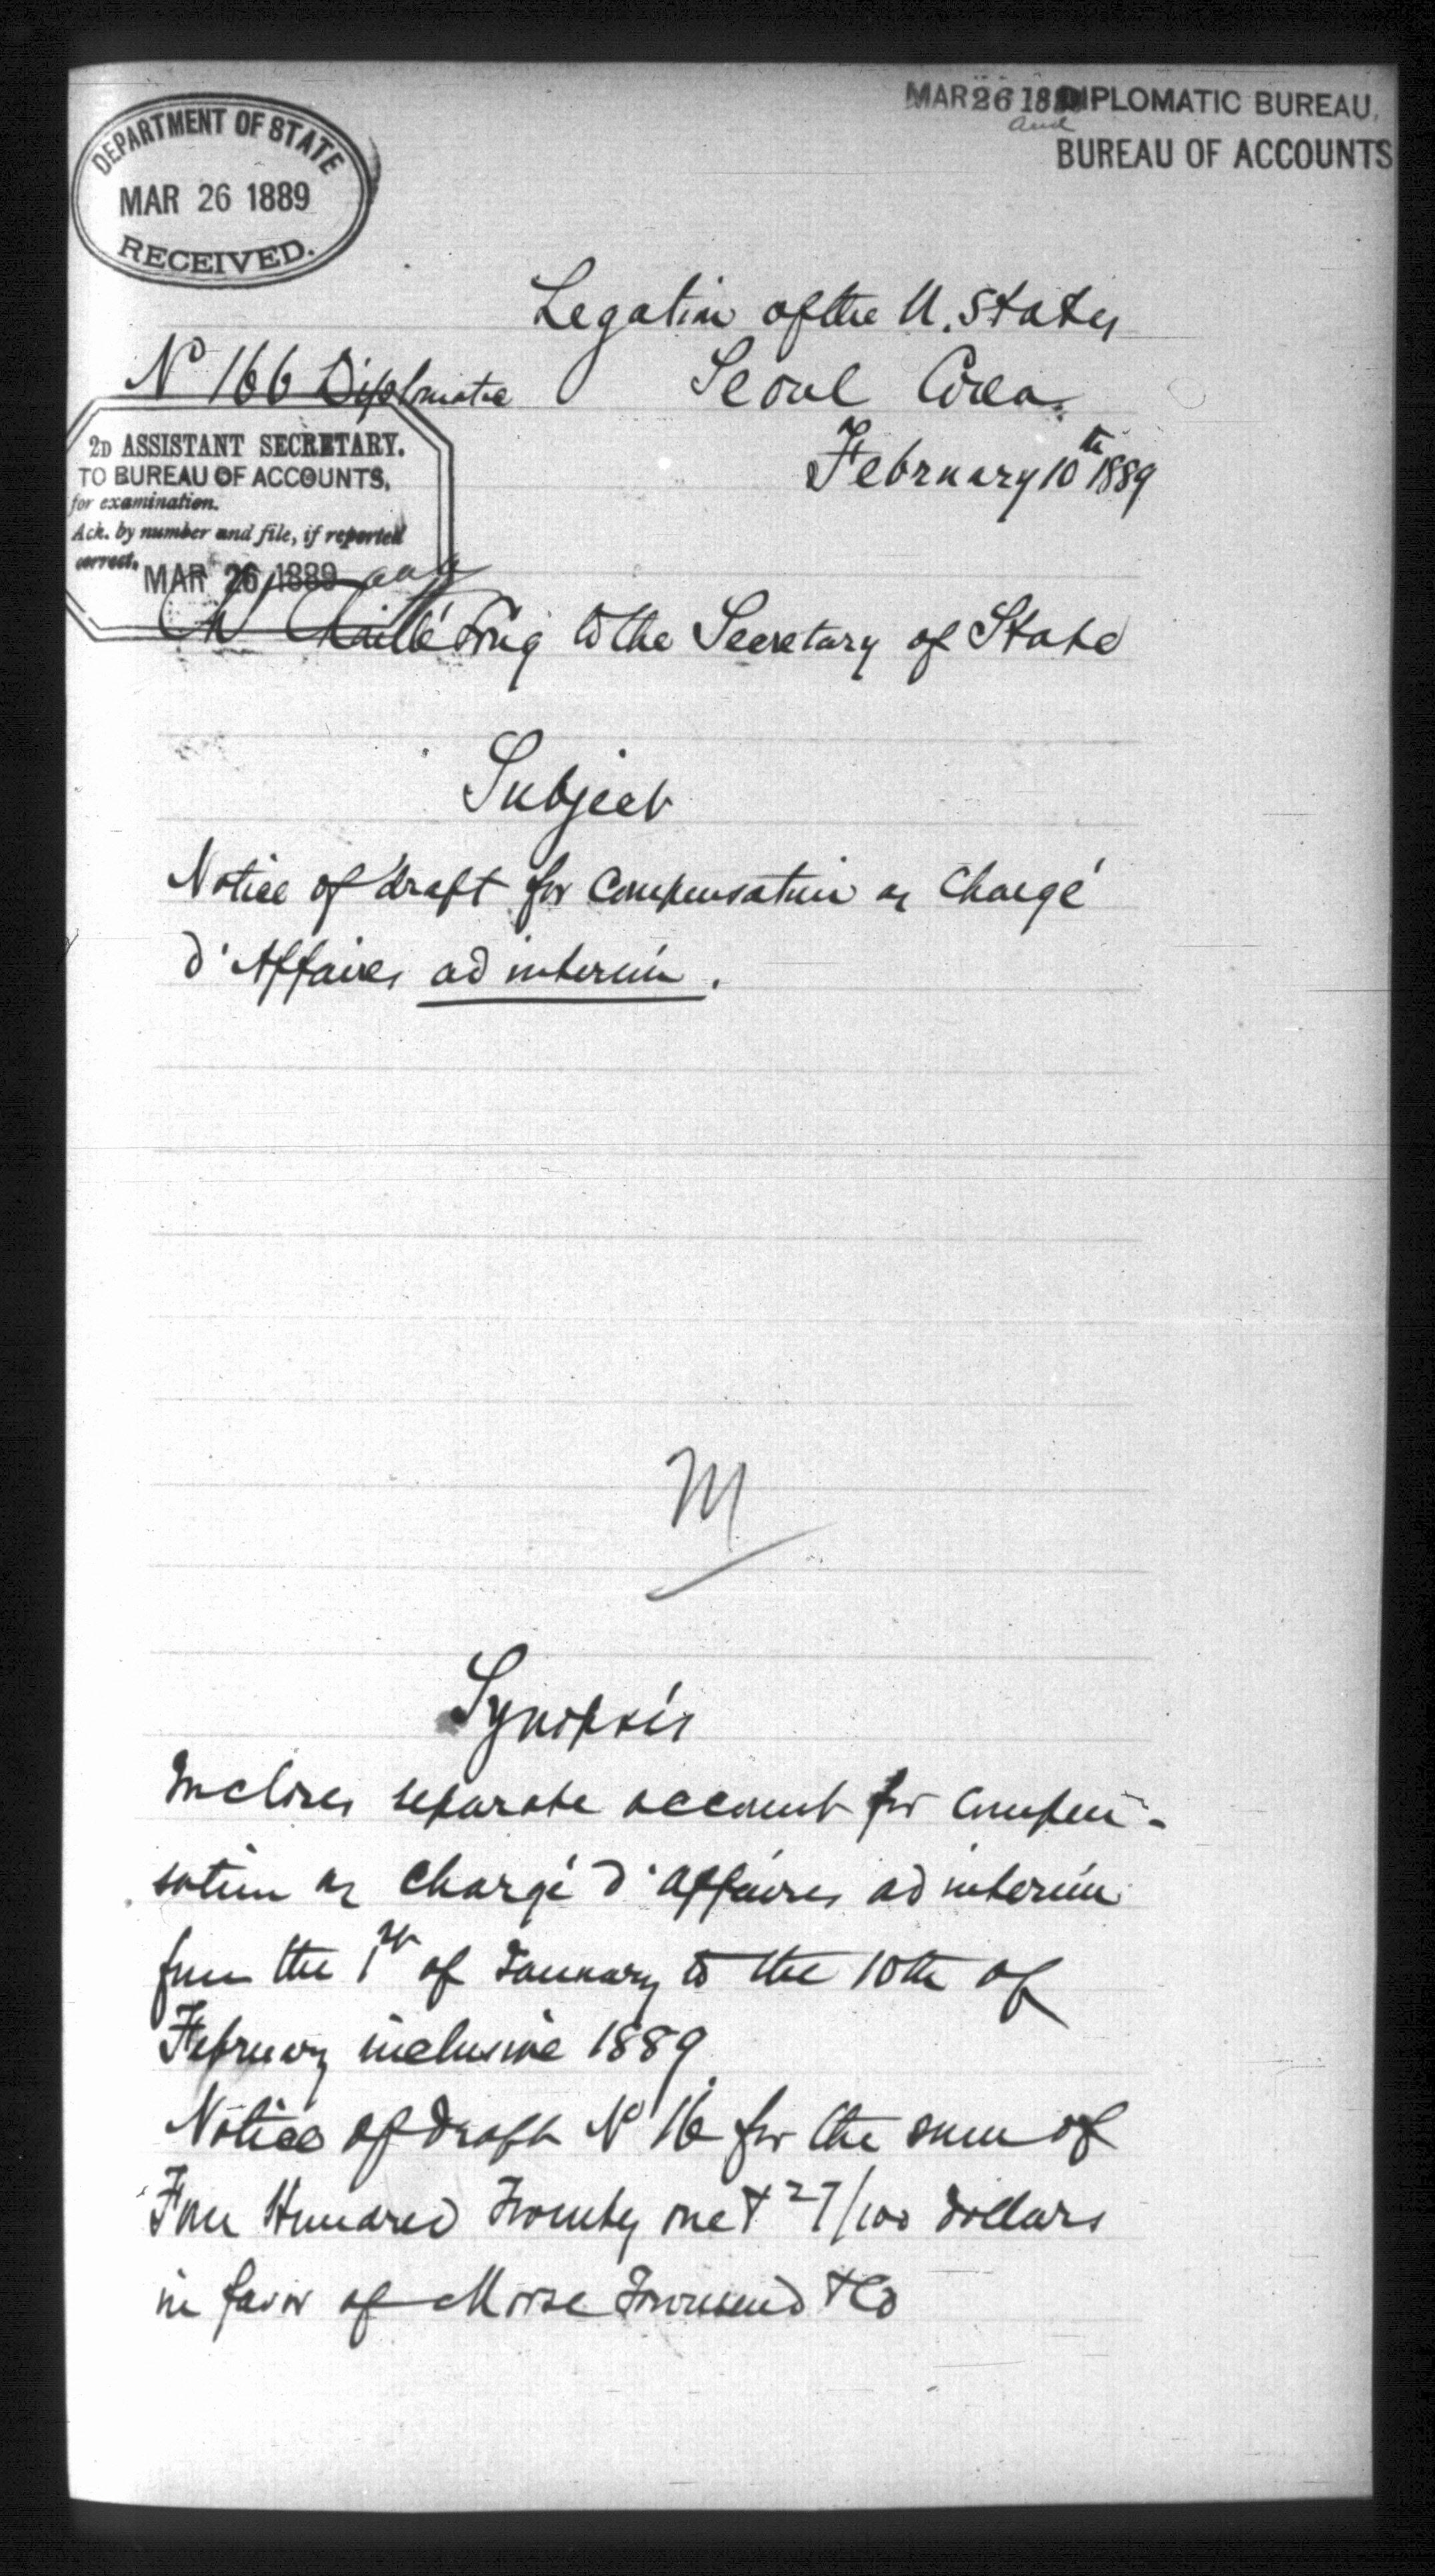 DEPARTMENT OF STATE
MAR 26 1889
RECEIVED.
MAR 26 1889 DIPLOMATIC BUREAU,
and
BUREAU OF ACCOUNTS
Legation of the U. States
Nº 166 Diplomatic
Seoul Corea.
February 10th 1889
2D ASSISTANT SECRETARY.
TO BUREAU OF ACCOUNTS,
for examination.
Ack. by number and file, if reported
correct.
MAR 26 1889
Chaillé Long to the Secretary of State
Subject
Notice of draft for Compensation as Chargé
d'Affaires ad interim.
M
Synopsis
Incloses separate account for Compen-
sation as Chargé d'Affaires ad interim
from the 1st of January to the 10th of
February inclusive 1889.
Notice of draft Nº 16 for the sum of
Four Hundred Twenty one + 27/100 dollars
in favor of Morse Townsend + Co